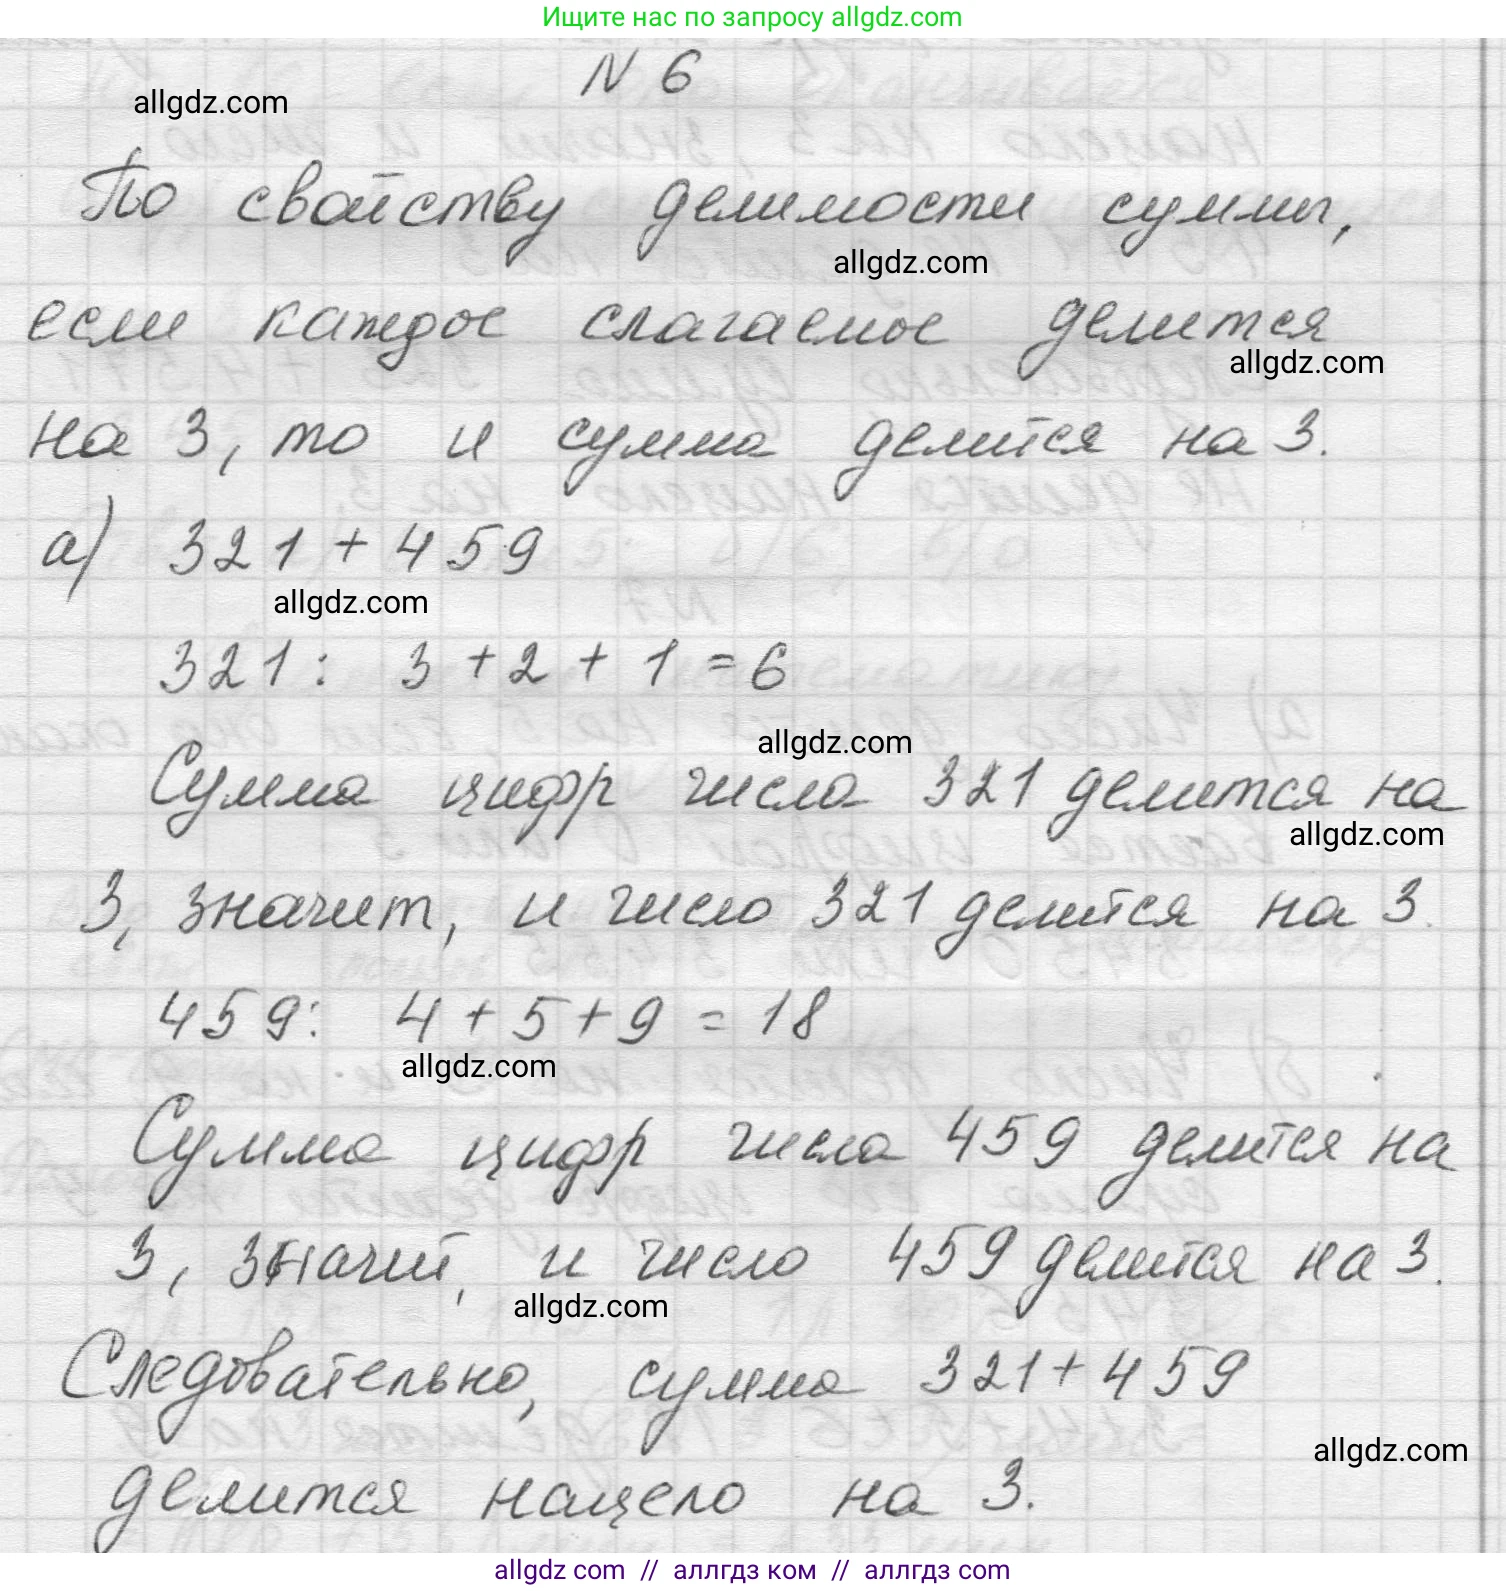 Ищите нас по запросу allgdz.com
N 6
allgdz.com
По свойству делимости суммы,
allgdz.com
если каждое слагаемое делится
allgdz.com
на 3, то и сумма делится на 3.
а) 321 + 459
allgdz.com
321: 3 + 2 + 1 = 6
allgdz.com
Сумма цифр числа 321 делится на
allgdz.com
3, значит, и число 321 делится на 3.
459: 4 + 5 + 9 = 18
allgdz.com
Сумма цифр числа 459 делится на
3, значит, и число 459 делится на 3.
allgdz.com
Следовательно, сумма 321 + 459
allgdz.com
делится нацело на 3.
allgdz.com // аллгдз ком // аллгдз com